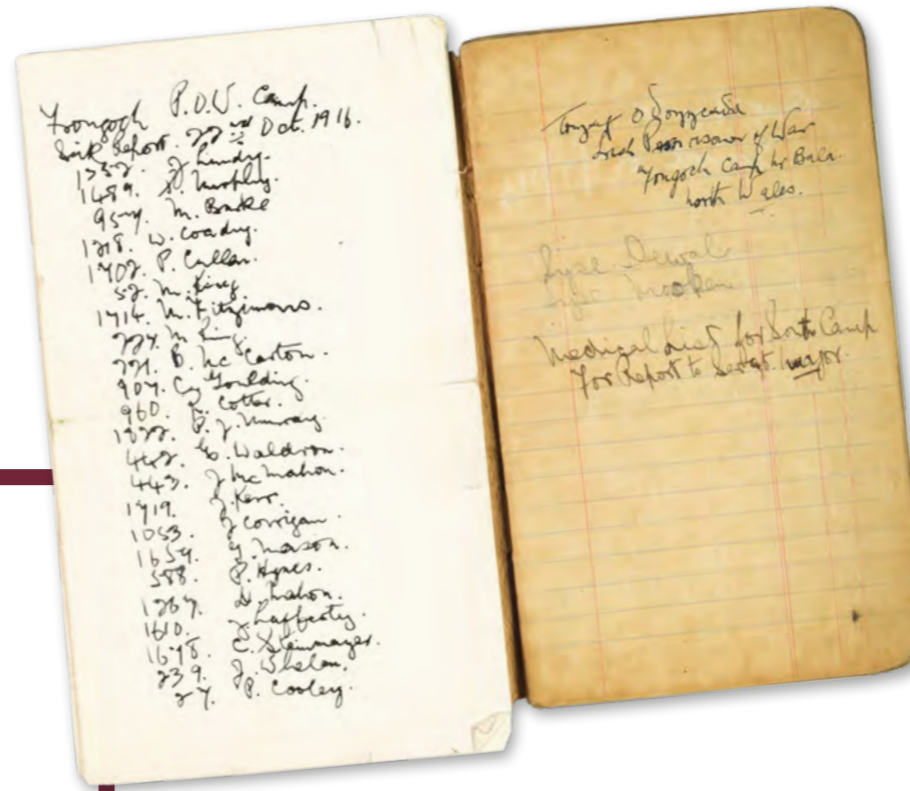 Frongoch P.O.W. Camp.
Sick Report. 22nd Oct. 1916.
J. Lundy.
1489. J. Murphy.
M. Burke
1218. W. Coady.
1702. P. Cullen.
52. M. King
1714. M. Fitzimons.
M. King.
221. D. McCarton.
907. Goulding.
960. Cotter.
1822. P. J. Murray.
442. Waldron.
443. J McMahon.
1719. J. Kerr.
1053. J Corrigan.
1654. Mason.
588. P. Hynes.
1267. Mahon.
1610. J Lafferty.
1678. C. Steinmayer.
239. J. Whelan.
27. P. Cooley.
Irish Prisoner of War
Frongoch Camp nr Bala.
North Wales.
Medical List for South Camp
For Report to Sergt. Major.